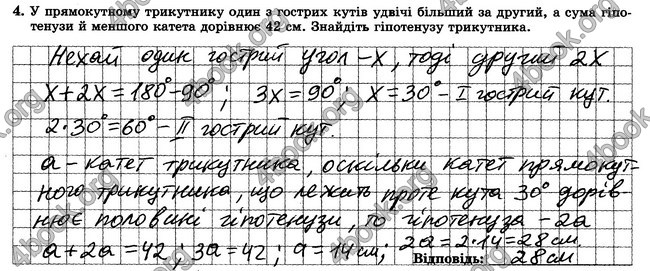 4. У прямокутному трикутнику один з гострих кутів удвічі більший за другий, а сума гіпо-
тенузи й меншого катета дорівнює 42 см. Знайдіть гіпотенузу трикутника.
Нехай один гострий угол -х, тоді другий 2х
х+2х=180°-90°; 3х=90°; х=30°-I гострий кут.
2·30°=60°-II гострий кут.
а-катет трикутника, оскільки катет прямокут-
ного трикутника, що лежить проте кута 30° дорів-
нює половині гіпотенузи, то гіпотенуза -2а
а+2а=42; 3а=42; а=14см; 2а=2·14=28см
Відповідь: 28см
4book.org